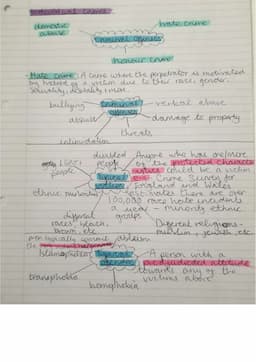 domestic abuse
hate crime
criminal offences
honour crime
Hate Crime: A crime where the perpetrator is motivated
by hatred of a victim due to their race, gender,
sexuality, disability
bullying
criminal offences
verbal abuse
assault
damage to property
threats
intimidation
disabled people
LGBT people
Anyone who has one/more
of the protected characteristics
could be a victim
typical victims
Crime Survey for
England and Wales
ethnic minorities
notes there are over
100,000 race hate incidents
a year - minority ethnic
groups
different races: black, brown, etc
Different religions -
muslim, jewish, etc
ableism
Islamophobia
typical offender
A person with a
prejudiced attitude
towards any of the
victims above
transphobia
homophobia